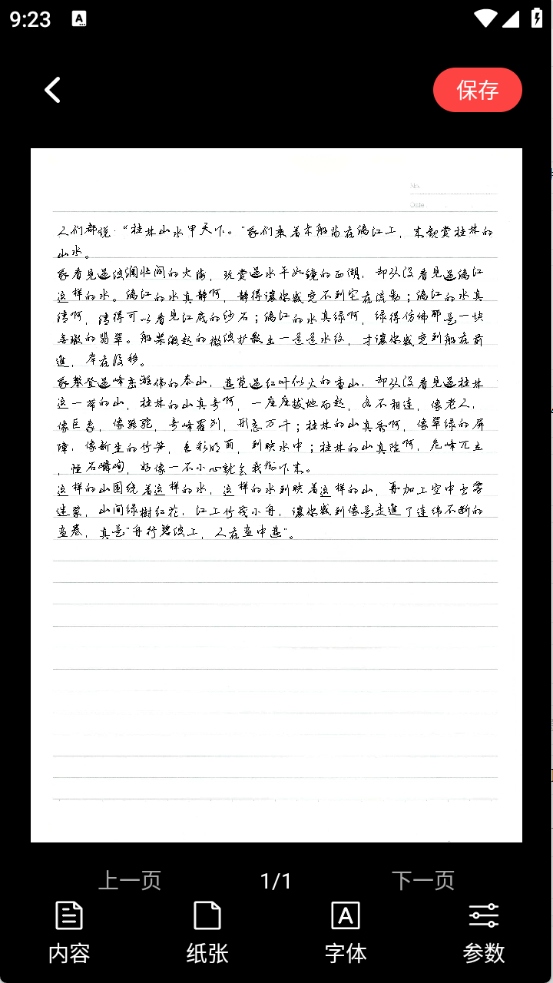 9:23
A
保存
No.
Date
人们都说："桂林山水甲天下。"我们乘着木船荡在漓江上，来观赏桂林的
山水。
我看见过波澜壮阔的大海，玩赏过水平如镜的西湖，却从没看见过漓江
这样的水。漓江的水真静啊，静得让你感觉不到它在流动；漓江的水真
清啊，清得可以看见江底的沙石；漓江的水真绿啊，绿得仿佛那是一块
无瑕的翡翠。船桨激起的微波扩散出一道道水纹，才让你感觉到船在前
进，岸在后移。
我攀登过峰峦雄伟的泰山，游览过红叶似火的香山，却从没看见过桂林
这一带的山，桂林的山真奇啊，一座座拔地而起，各不相连，像老人，
像巨象，像骆驼，奇峰罗列，形态万千；桂林的山真秀啊，像翠绿的屏
障，像新生的竹笋，色彩明丽，倒映水中；桂林的山真险啊，危峰兀立
，怪石嶙峋，好像一不小心就会栽倒下来。
这样的山围绕着这样的水，这样的水倒映着这样的山，再加上空中云雾
迷蒙，山间绿树红花，江上竹筏小舟，让你感到像是走进了连绵不断的
画卷，真是"舟行碧波上，人在画中游"。
上一页
1/1
下一页
内容
纸张
A
字体
参数